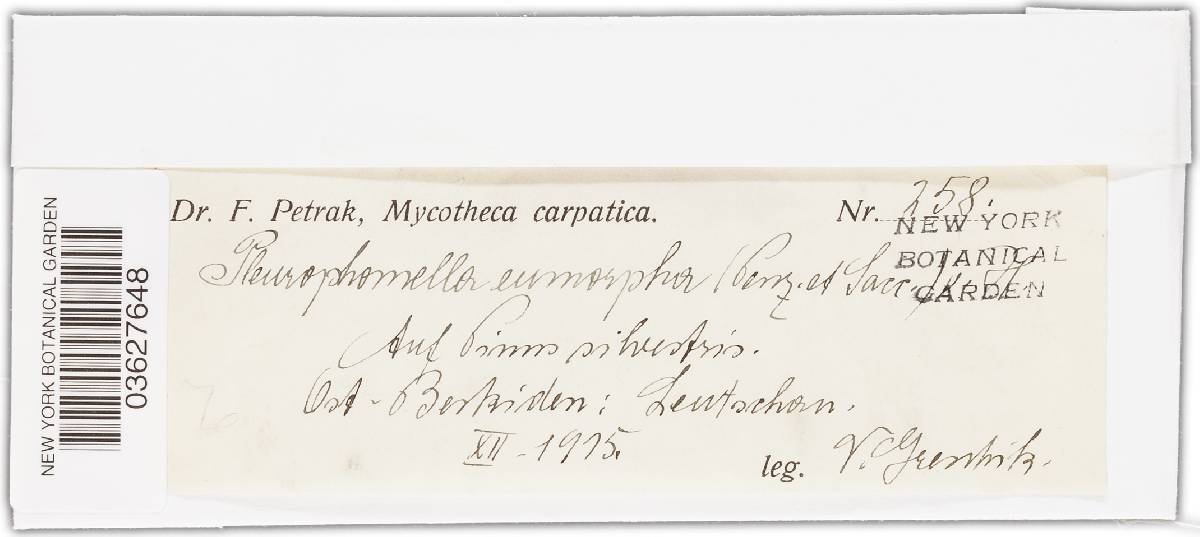 NEW YORK BOTANICAL GARDEN
03627648
Dr. F. Petrak, Mycotheca carpatica. Nr. 258.
NEW YORK
BOTANICAL
GARDEN
Pleurophomella eumorpha (Penz. et Sacc.)
Auf Pinus silvestris.
Ost-Beskiden: Leutschau.
XII - 1915.
leg. V. Greschik.